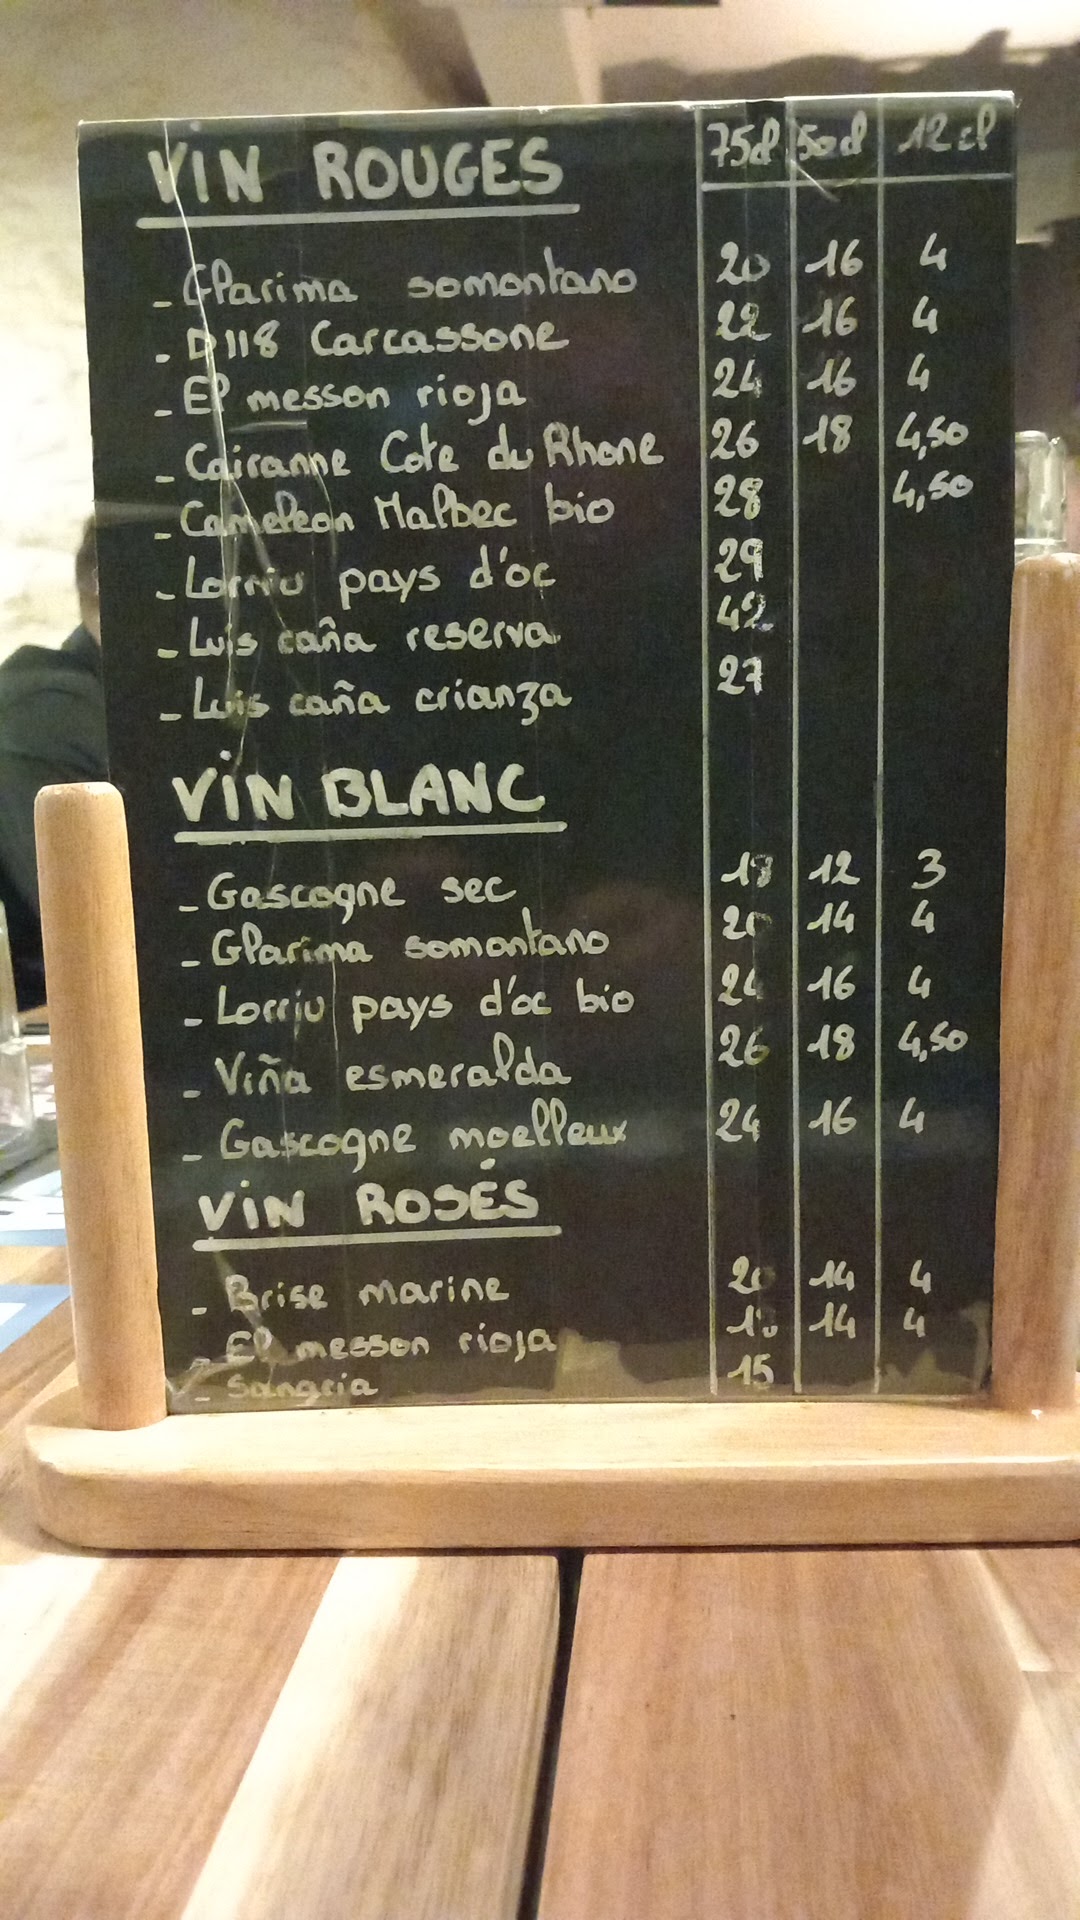 VIN ROUGES 75cl 50cl 12cl
- Glarima somontano 20 16 4
- D118 Carcassone 22 16 4
- El messon rioja 24 16 4
- Cairanne Cote du Rhone 26 18 4,50
- Cameleon Malbec bio 28 4,50
- Lorriu pays d'oc 29
- Luis caña reserva 42
- Luis caña crianza 27
ViN BLANC
- Gascogne sec 12 3
- Glarima somontano 20 14 4
- Lorriu pays d'oc bio 24 16 4
- Viña esmeralda 26 18 4,50
- Gascogne moelleux 24 16 4
ViN ROSÉS
- Brise marine 20 14 4
- El messon rioja 14 4
- Sangria 15